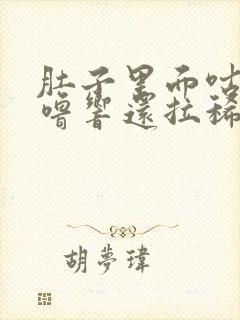 肚子里而咕
噜響還拉稀
胡夢瑋